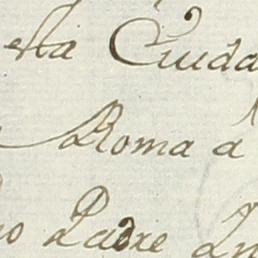 esta Ciuda
Roma a
Padre